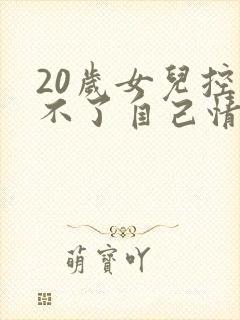 20歲女兒控
不了自己情
萌寶吖